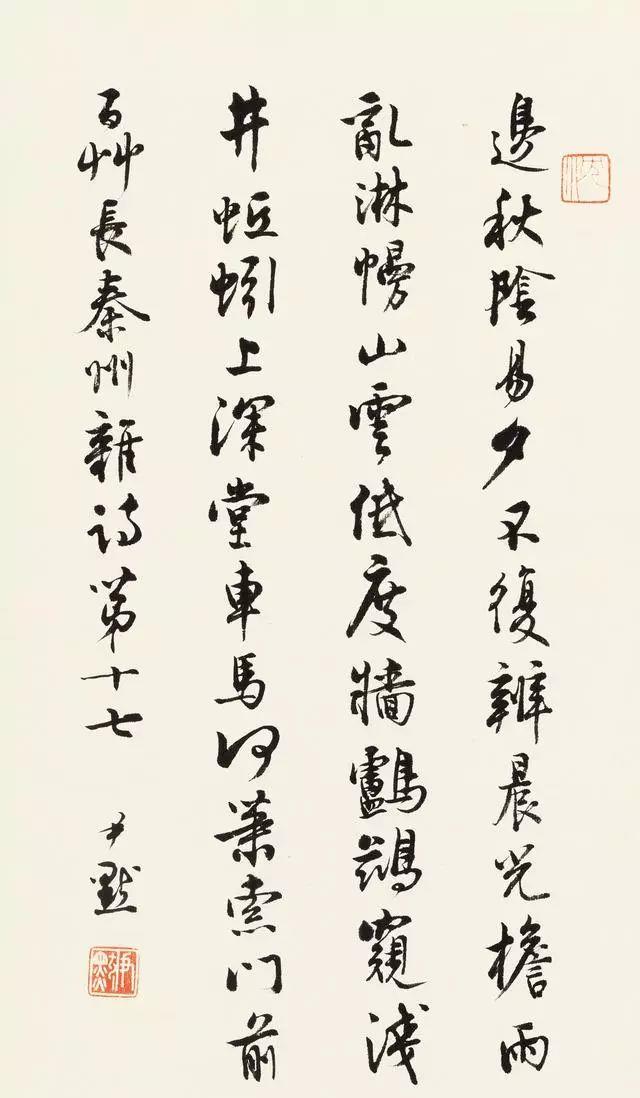 邊秋陰易夕不復辨晨光檐雨
亂淋幔山雲低度牆鸕鷀窺淺
井蚯蚓上深堂車馬何蕭索門前
百艸長秦州雜詩第十七
尹默
沈